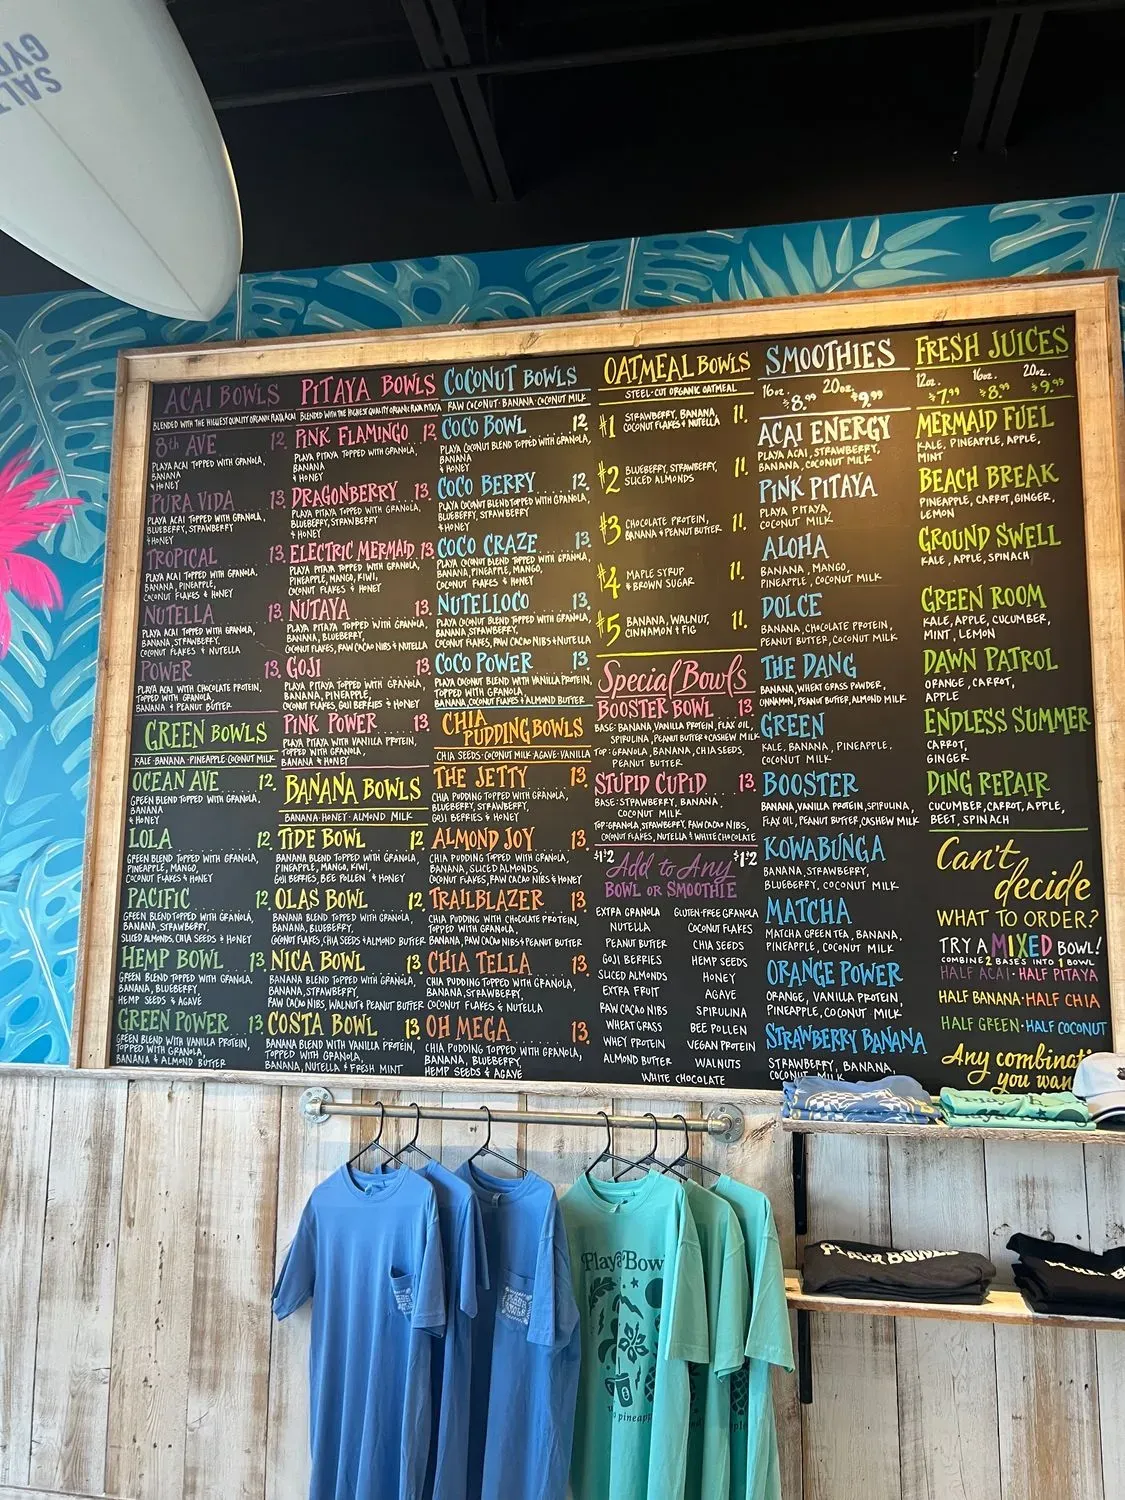 SALT
GYP
ACAI BOWLS
BLENDED WITH THE HIGHEST QUALITY ORGANIC PLAYA ACAI
8th AVE 12.
PLAYA ACAI TOPPED WITH GRANOLA,
BANANA
& HONEY
PURA VIDA 13.
PLAYA ACAI TOPPED WITH GRANOLA,
BLUEBERRY, STRAWBERRY
& HONEY
TROPICAL 13.
PLAYA ACAI TOPPED WITH GRANOLA,
BANANA, PINEAPPLE,
COCONUT FLAKES & HONEY
NUTELLA 13.
PLAYA ACAI TOPPED WITH GRANOLA,
BANANA, STRAWBERRY,
COCONUT FLAKES & NUTELLA
POWER 13.
PLAYA ACAI WITH CHOCOLATE PROTEIN,
TOPPED WITH GRANOLA,
BANANA & PEANUT BUTTER
GREEN BOWLS
KALE·BANANA·PINEAPPLE·COCONUT MILK
OCEAN AVE 12.
GREEN BLEND TOPPED WITH GRANOLA,
BANANA
& HONEY
LOLA 12.
GREEN BLEND TOPPED WITH GRANOLA,
PINEAPPLE, MANGO,
COCONUT FLAKES & HONEY
PACIFIC 12.
GREEN BLEND TOPPED WITH GRANOLA,
BANANA, STRAWBERRY,
SLICED ALMONDS, CHIA SEEDS & HONEY
HEMP BOWL 13.
GREEN BLEND TOPPED WITH GRANOLA,
BANANA, BLUEBERRY,
HEMP SEEDS & AGAVE
GREEN POWER 13.
GREEN BLEND WITH VANILLA PROTEIN,
TOPPED WITH GRANOLA,
BANANA & ALMOND BUTTER
PITAYA BOWLS
BLENDED WITH THE HIGHEST QUALITY ORGANIC PLAYA PITAYA
PINK FLAMINGO 12
PLAYA PITAYA TOPPED WITH GRANOLA,
BANANA
& HONEY
DRAGONBERRY 13.
PLAYA PITAYA TOPPED WITH GRANOLA,
BLUEBERRY, STRAWBERRY
& HONEY
ELECTRIC MERMAID 13.
PLAYA PITAYA TOPPED WITH GRANOLA,
PINEAPPLE, MANGO, KIWI,
COCONUT FLAKES & HONEY
NUTAYA 13.
PLAYA PITAYA TOPPED WITH GRANOLA,
BANANA, BLUEBERRY,
COCONUT FLAKES, RAW CACAO NIBS & NUTELLA
GOJI 13.
PLAYA PITAYA TOPPED WITH GRANOLA,
BANANA, PINEAPPLE,
COCONUT FLAKES, GOJI BERRIES & HONEY
PINK POWER 13.
PLAYA PITAYA WITH VANILLA PROTEIN,
TOPPED WITH GRANOLA,
BANANA & HONEY
BANANA BOWLS
BANANA·HONEY·ALMOND MILK
TIDE BOWL 12.
BANANA BLEND TOPPED WITH GRANOLA,
PINEAPPLE, MANGO, KIWI,
GOJI BERRIES, BEE POLLEN & HONEY
OLAS BOWL 12.
BANANA BLEND TOPPED WITH GRANOLA,
BANANA, BLUEBERRY,
COCONUT FLAKES, CHIA SEEDS & ALMOND BUTTER
NICA BOWL 13.
BANANA BLEND TOPPED WITH GRANOLA,
BANANA, STRAWBERRY,
RAW CACAO NIBS, WALNUT & PEANUT BUTTER
COSTA BOWL 13.
BANANA BLEND WITH VANILLA PROTEIN,
TOPPED WITH GRANOLA,
BANANA, NUTELLA & FRESH MINT
COCONUT BOWLS
RAW COCONUT·BANANA·COCONUT MILK
COCO BOWL 12
PLAYA COCONUT BLEND TOPPED WITH GRANOLA,
BANANA
& HONEY
COCO BERRY 12.
PLAYA COCONUT BLEND TOPPED WITH GRANOLA,
BLUEBERRY, STRAWBERRY
& HONEY
COCO CRAZE 13.
PLAYA COCONUT BLEND TOPPED WITH GRANOLA,
BANANA, PINEAPPLE, MANGO,
COCONUT FLAKES & HONEY
NUTELLOCO 13.
PLAYA COCONUT BLEND TOPPED WITH GRANOLA,
BANANA, STRAWBERRY,
COCONUT FLAKES, RAW CACAO NIBS & NUTELLA
COCO POWER 13.
PLAYA COCONUT BLEND WITH VANILLA PROTEIN,
TOPPED WITH GRANOLA,
BANANA, COCONUT FLAKES & ALMOND BUTTER
CHIA
PUDDING BOWLS
CHIA SEEDS·COCONUT MILK·AGAVE·VANILLA
THE JETTY 13.
CHIA PUDDING TOPPED WITH GRANOLA,
BLUEBERRY, STRAWBERRY,
GOJI BERRIES & HONEY
ALMOND JOY 13.
CHIA PUDDING TOPPED WITH GRANOLA,
BANANA, SLICED ALMONDS,
COCONUT FLAKES, RAW CACAO NIBS & HONEY
TRAILBLAZER 13.
CHIA PUDDING WITH CHOCOLATE PROTEIN,
TOPPED WITH GRANOLA,
BANANA, RAW CACAO NIBS & PEANUT BUTTER
CHIA TELLA 13.
CHIA PUDDING TOPPED WITH GRANOLA,
BANANA, STRAWBERRY,
COCONUT FLAKES & NUTELLA
OH MEGA 13.
CHIA PUDDING TOPPED WITH GRANOLA,
BANANA, BLUEBERRY,
HEMP SEEDS & AGAVE
OATMEAL BOWLS
STEEL-CUT ORGANIC OATMEAL
#1 STRAWBERRY, BANANA, 11.
COCONUT FLAKES & NUTELLA
#2 BLUEBERRY, STRAWBERRY, 11.
SLICED ALMONDS
#3 CHOCOLATE PROTEIN, 11.
BANANA & PEANUT BUTTER
#4 MAPLE SYRUP 11.
& BROWN SUGAR
#5 BANANA, WALNUT, 11.
CINNAMON & FIG
Special Bowls
BOOSTER BOWL 13.
BASE: BANANA, VANILLA PROTEIN, FLAX OIL,
SPIRULINA, PEANUT BUTTER & CASHEW MILK
TOP: GRANOLA, BANANA, CHIA SEEDS,
PEANUT BUTTER
STUPID CUPID 13.
BASE: STRAWBERRY, BANANA,
COCONUT MILK
TOP: GRANOLA, STRAWBERRY, RAW CACAO NIBS,
COCONUT FLAKES, NUTELLA & WHITE CHOCOLATE
$1-$2 Add to Any $1-$2
BOWL OR SMOOTHIE
EXTRA GRANOLA GLUTEN-FREE GRANOLA
NUTELLA COCONUT FLAKES
PEANUT BUTTER CHIA SEEDS
GOJI BERRIES HEMP SEEDS
SLICED ALMONDS HONEY
EXTRA FRUIT AGAVE
RAW CACAO NIBS SPIRULINA
WHEAT GRASS BEE POLLEN
WHEY PROTEIN VEGAN PROTEIN
ALMOND BUTTER WALNUTS
WHITE CHOCOLATE
SMOOTHIES
16oz. 20oz.
$8.99 $9.99
ACAI ENERGY
PLAYA ACAI, STRAWBERRY,
BANANA, COCONUT MILK
PINK PITAYA
PLAYA PITAYA,
COCONUT MILK
ALOHA
BANANA, MANGO,
PINEAPPLE, COCONUT MILK
DOLCE
BANANA, CHOCOLATE PROTEIN,
PEANUT BUTTER, COCONUT MILK
THE DANG
BANANA, WHEAT GRASS POWDER,
CINNAMON, PEANUT BUTTER, ALMOND MILK
GREEN
KALE, BANANA, PINEAPPLE,
COCONUT MILK
BOOSTER
BANANA, VANILLA PROTEIN, SPIRULINA,
FLAX OIL, PEANUT BUTTER, CASHEW MILK
KOWABUNGA
BANANA, STRAWBERRY,
BLUEBERRY, COCONUT MILK
MATCHA
MATCHA GREEN TEA, BANANA,
PINEAPPLE, COCONUT MILK
ORANGE POWER
ORANGE, VANILLA PROTEIN,
PINEAPPLE, COCONUT MILK
STRAWBERRY BANANA
STRAWBERRY, BANANA,
COCONUT MILK
FRESH JUICES
12oz. 16oz. 20oz.
$7.99 $8.99 $9.99
MERMAID FUEL
KALE, PINEAPPLE, APPLE,
MINT
BEACH BREAK
PINEAPPLE, CARROT, GINGER,
LEMON
GROUND SWELL
KALE, APPLE, SPINACH
GREEN ROOM
KALE, APPLE, CUCUMBER,
MINT, LEMON
DAWN PATROL
ORANGE, CARROT,
APPLE
ENDLESS SUMMER
CARROT,
GINGER
DING REPAIR
CUCUMBER, CARROT, APPLE,
BEET, SPINACH
Can't
decide
WHAT TO ORDER?
TRY A MIXED BOWL!
COMBINE 2 BASES INTO 1 BOWL
HALF ACAI·HALF PITAYA
HALF BANANA·HALF CHIA
HALF GREEN·HALF COCONUT
Any combinati
you wan
Playa Bowl
pineap
PLAYA BOWLS